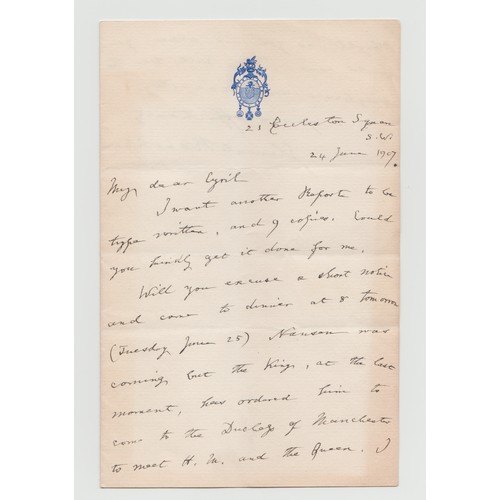 21 Eccleston Square
S.W.
24 June 1907.
My dear Cyril
I want another Report to be
type written, and 9 copies. Could
you kindly get it done for me.
Will you excuse a short notice
and come to dinner at 8 tomorrow
(Tuesday June 25) Nansen was
coming but the King, at the last
moment, has ordered him to
come to the Duchess of Manchester
to meet H. M. and the Queen. I